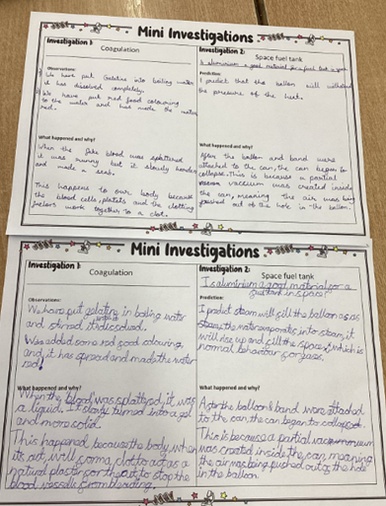 Mini Investigations
Investigation 1:
Coagulation
Observations:
We have put Gelatine into boiling water
it has dissolved completely.
We have put red food colouring
to the water and has made the water
red.
What happened and why?
When the fake blood was splattered
it was runny but it slowly
and made a scab.
This happens to our body because
the blood cells, and the clotting
work together to a clot.
Investigation 2:
Space fuel tank
Is aluminium a good material for a fuel tank in space
Prediction:
I predict that the ballon will withstand
the pressure of the heat.
What happened and why?
After the ballon and band were
attached to the can, the can began to
collapse. This is because a partial
vacuum was created inside
the can, meaning the air was being
pushed out of the hole in the ballon.
Mini Investigations
Investigation 1:
Coagulation
Observations:
We have put gelatine in boiling water
and stirred it
We added some red food colouring
and it has spread and made the water
red!
What happened and why?
When the blood was splattered, it was
a liquid. It slowly turned into a gel
and more solid.
This happened because the body, when
its cut, will form a clot to act as a
natural plaster for the cut to stop the
blood vessels from bleeding.
Investigation 2:
Space fuel tank
Is aluminium a good material for a
fuel tank in space
Prediction:
I predict steam will fill the balloon as as
the water evaporates into steam, it
will rise up and fill the space, which is
normal behaviour for gases.
What happened and why?
After the balloon & band were attached
to the can, the can began to collapse.
This is because a partial vacuum
was created inside the can, meaning
the air was being pushed out of the hole
in the balloon.